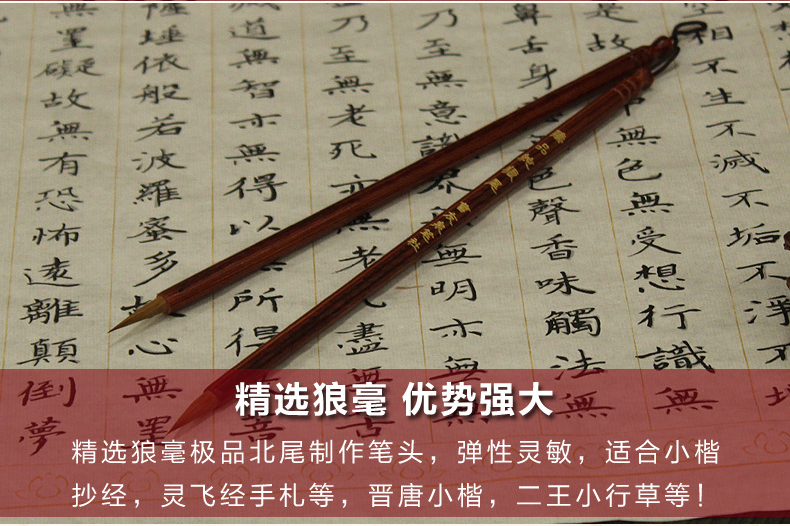 相不生不滅不垢不淨
是故中色無受想行識無
鼻舌身色聲香味觸法無
乃至無意識界無明亦無
乃至無老死亦無老盡無苦
道無智亦無得以所得菩
薩埵依般若波羅蜜多故心無罣
無罣礙故無有恐怖遠離顛倒夢
精选狼毫 优势强大
精选狼毫极品北尾制作笔头，弹性灵敏，适合小楷
抄经，灵飞经手札等，晋唐小楷，二王小行草等！